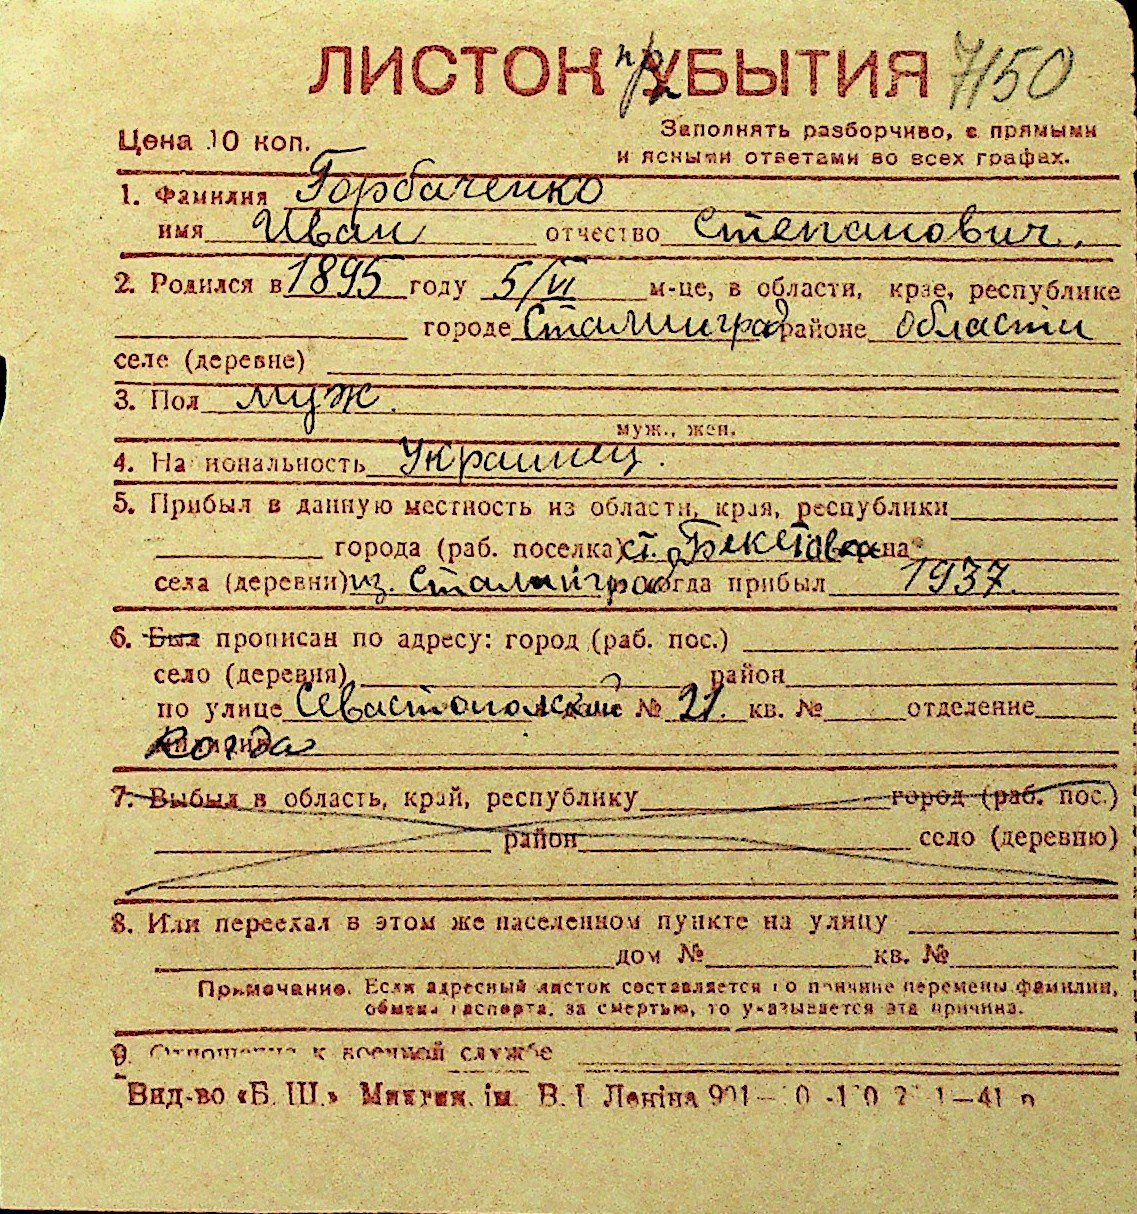 ЛИСТОК прУБЫТИЯ 7/150
Цена 10 коп.
Заполнять разборчиво, с прямыми
и ясными ответами во всех графах.
1. Фамилия Горбаченко
имя Иван отчество Степанович.
2. Родился в 1895 году 5/VI м-це, в области, крае, республике
городе Сталинград районе области
селе (деревне)
3. Пол муж.
муж., жен.
4. Национальность Украинец.
5. Прибыл в данную местность из области, края, республики
города (раб. поселка) ст. Бекетовка
села (деревни) из. Сталинград когда прибыл 1937.
6. Был прописан по адресу: город (раб. пос.)
село (деревня) район
по улице Севастопольский доме № 21. кв. № отделение
Когда
7. Выбыл в область, край, республику город (раб. пос.)
район село (деревню)
8. Или переехал в этом же населенном пункте на улицу
дом № кв. №
Примечание. Если адресный листок составляется по причине перемены фамилии,
обмена паспорта, за смертью, то указывается эта причина.
9. Отношение к военной службе
Вид-во «Б. Ш.» Микгик. ім. В. І. Леніна